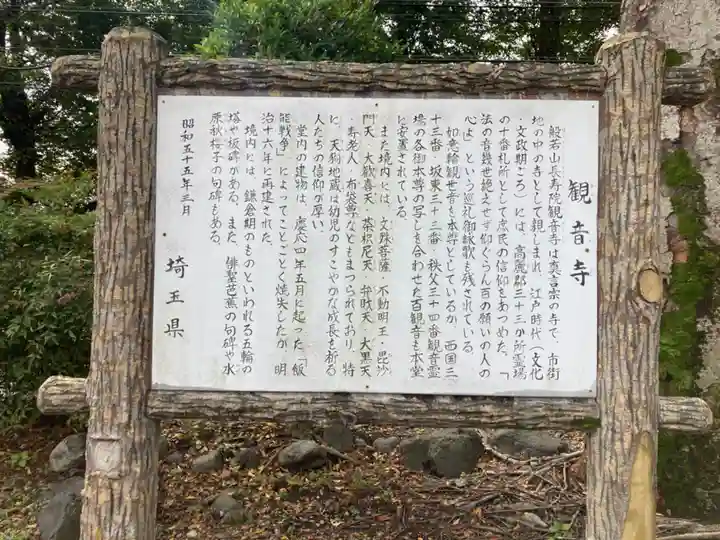 観音寺
般若山長寿院観音寺は真言宗の寺で、市街
地の中の寺として親しまれ、江戸時代(文化
・文政期ごろ)には、高麗郡三十三か所霊場
の十番札所として庶民の信仰をあつめた。「
法の音幾世絶えせず仰ぐらん百の願いの人の
心よ」という巡礼御詠歌も残されている。
如意輪観世音を本尊としているが、西国三
十三番、坂東三十三番、秩父三十四番観音霊
場の各御本尊の写しを合わせた百観音も本堂
に安置されている。
また境内には、文殊菩薩、不動明王、毘沙
門天、大歓喜天、荼枳尼天、弁財天、大黒天
寿老人、布袋尊などもまつられており、特
に、天狗地蔵は幼児のすこやかな成長を祈る
人たちの信仰が厚い。
堂内の建物は、慶応四年五月に起った「飯
能戦争」によってことごとく焼失したが、明
治十六年に再建された。
境内には、鎌倉期のものといわれる五輪の
塔や板碑がある。また、俳聖芭蕉の句碑や水
原秋桜子の句碑もある。
昭和五十五年三月
埼玉県